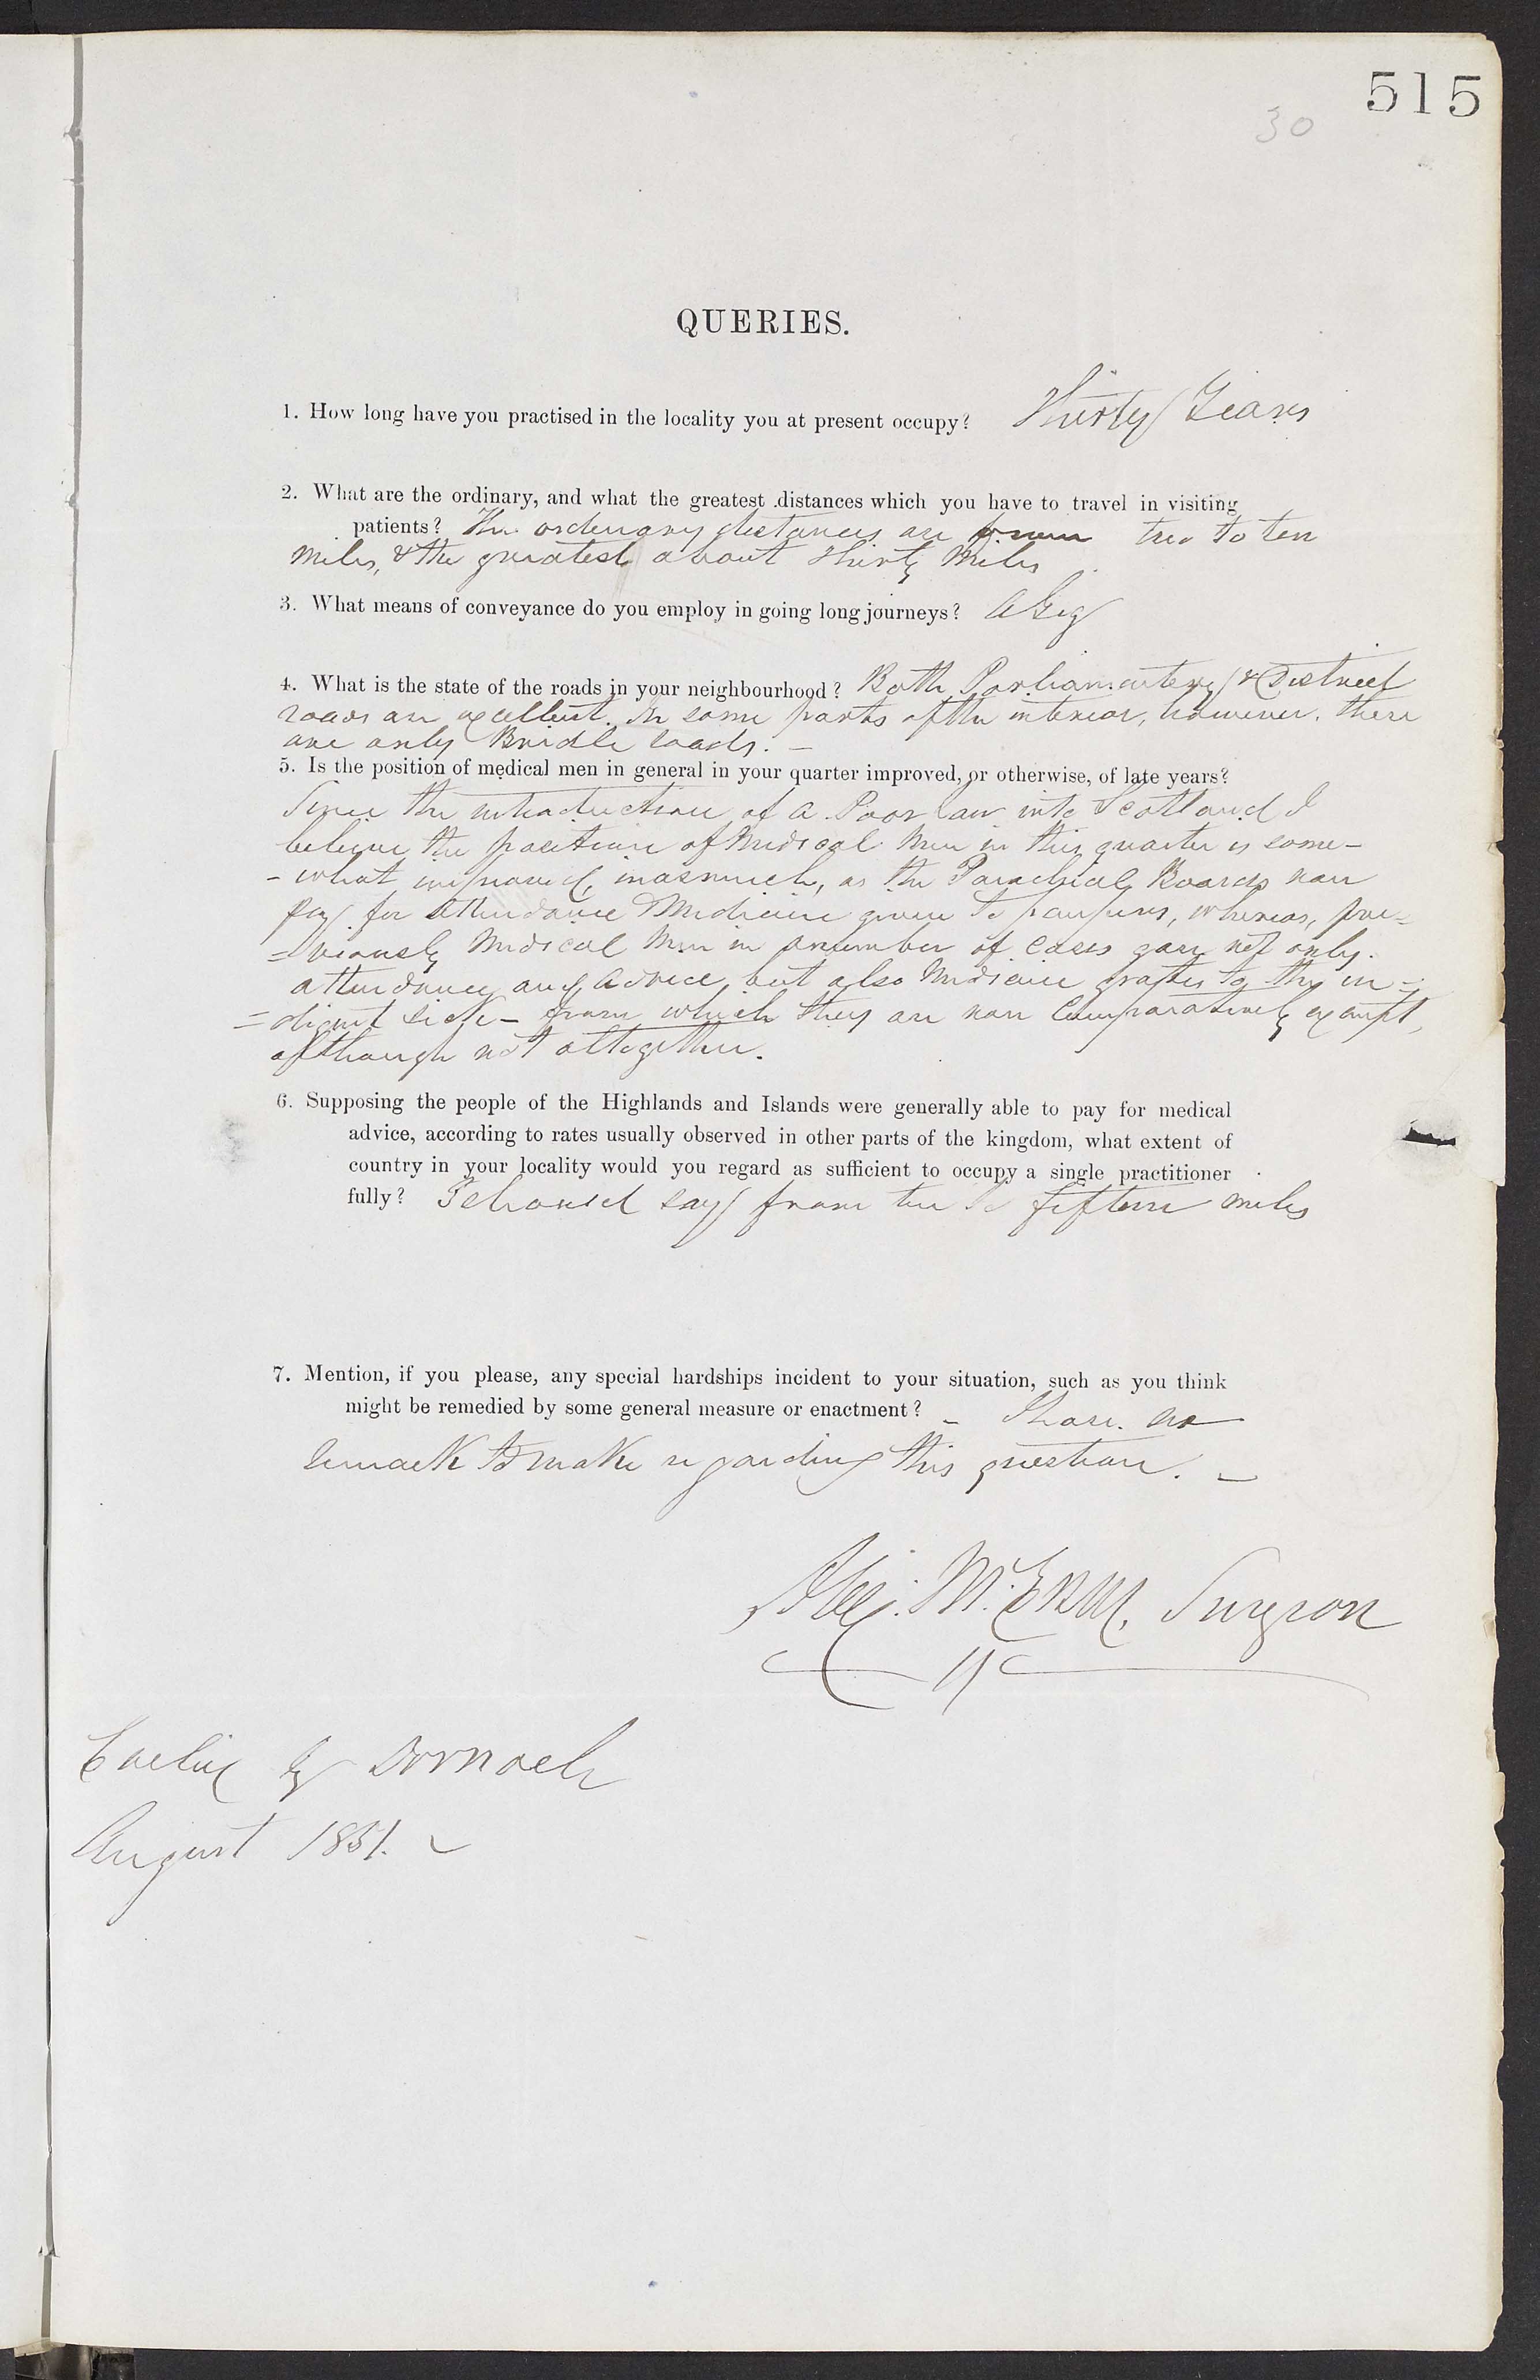 515
30
QUERIES.
1. How long have you practised in the locality you at present occupy? Thirty Years
2. What are the ordinary, and what the greatest distances which you have to travel in visiting
patients? The ordinary distances are two to ten
miles, & the greatest about thirty miles
3. What means of conveyance do you employ in going long journeys? a Gig
4. What is the state of the roads in your neighbourhood? Both Parliamentary & District
roads are excellent. In some parts of the interior, however, there
are only Bridle roads. –
5. Is the position of medical men in general in your quarter improved, or otherwise, of late years?
Since the introduction of a Poor law into Scotland I
believe the position of Medical Men in this quarter is some-
- what improved, inasmuch, as the Parochial Boards now
pay for attendance & Medicine given to paupers, whereas, pre=
=viously Medical Men in a number of cases gave not only
attendance and advice, but also Medicine gratis to the in=
=digent sick – from which they are now Comparatively exempt,
although not altogether.
6. Supposing the people of the Highlands and Islands were generally able to pay for medical
advice, according to rates usually observed in other parts of the kingdom, what extent of
country in your locality would you regard as sufficient to occupy a single practitioner
fully? I should say from ten to fifteen miles
7. Mention, if you please, any special hardships incident to your situation, such as you think
might be remedied by some general measure or enactment? – I have no
remark to make regarding this question. –
Surgeon
by Dornoch
August 1851.